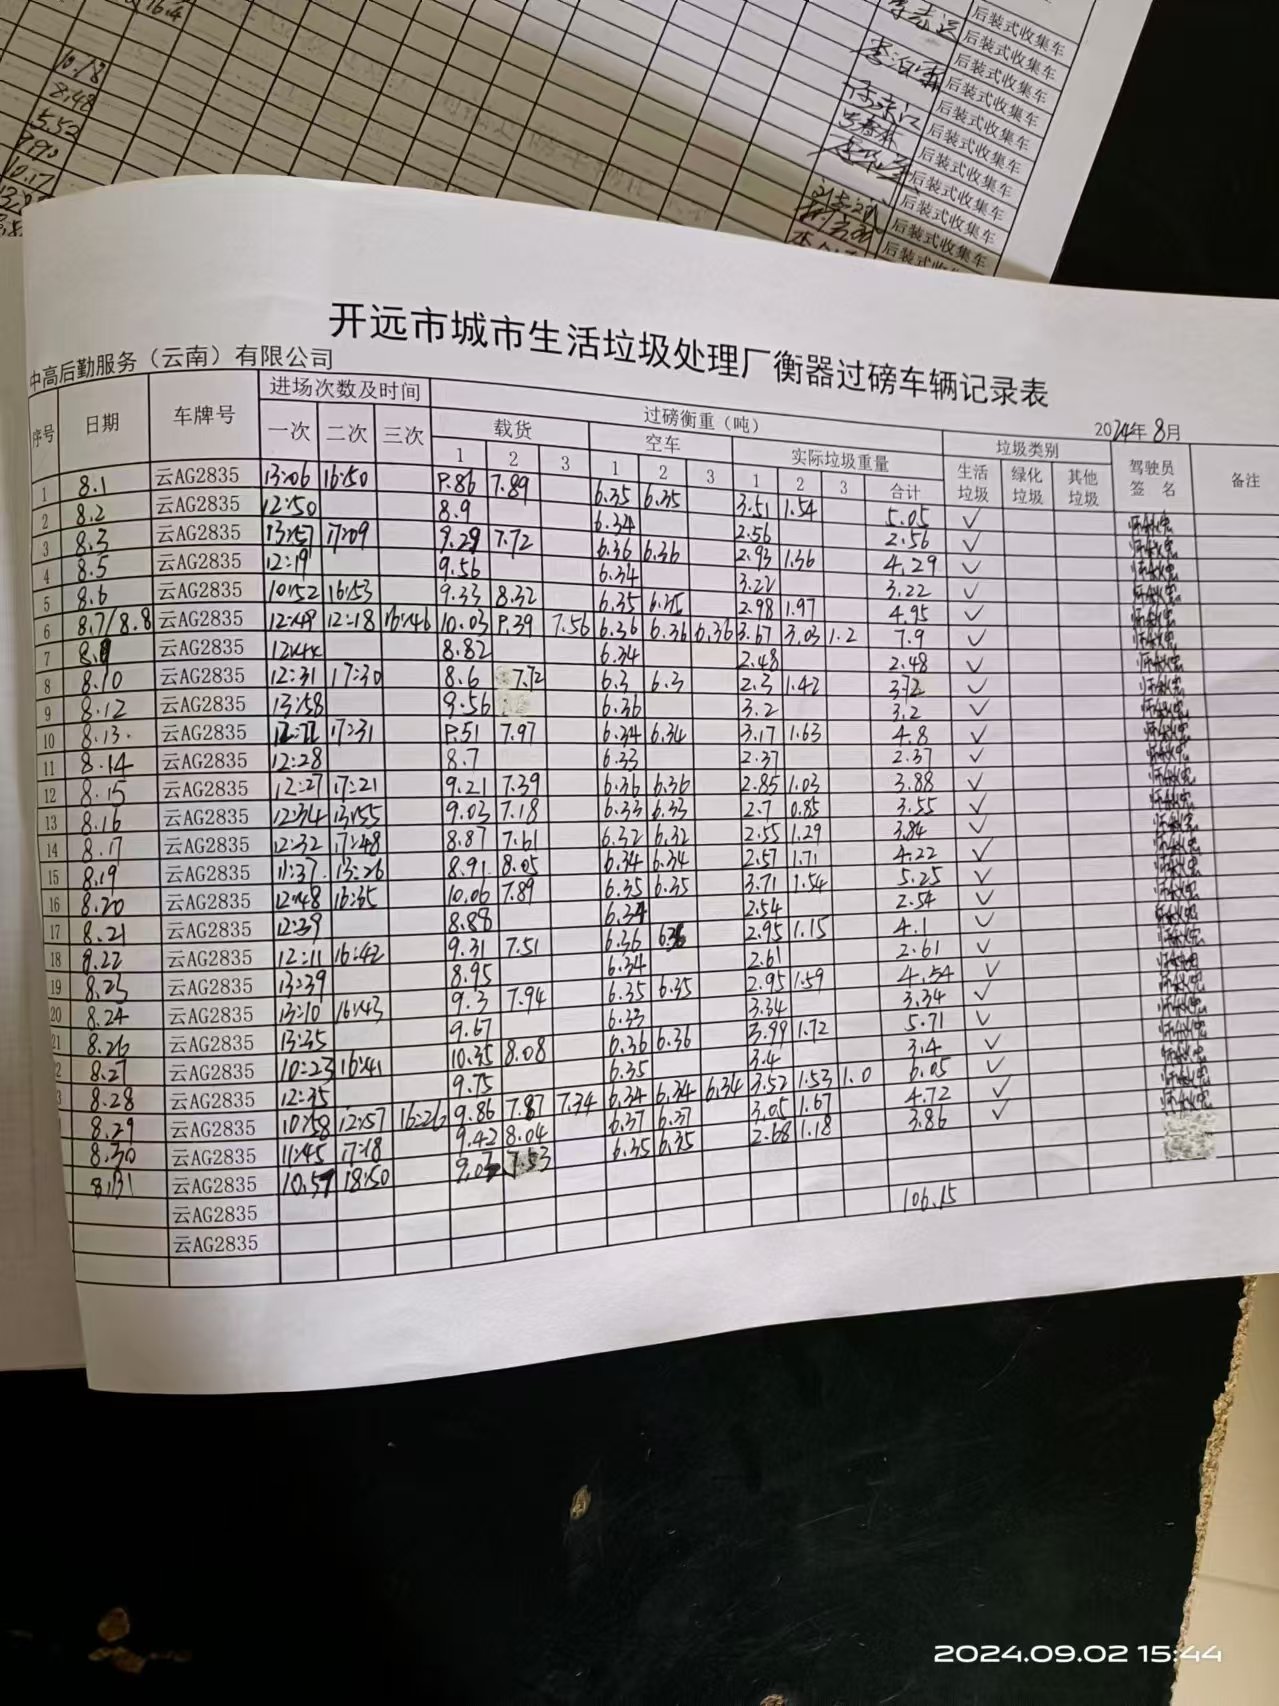 开远市城市生活垃圾处理厂衡器过磅车辆记录表
中高后勤服务（云南）有限公司
2024年 8月
序号 日期 车牌号 进场次数及时间 过磅衡重（吨） 垃圾类别 驾驶员签 名 备注
一次 二次 三次 载货 空车 实际垃圾重量 生活垃圾 绿化垃圾 其他垃圾
1 2 3 1 2 3 1 2 3 合计
1 8.1 云AG2835 13:06 16:50 9.86 7.89 6.35 6.35 3.51 1.54 5.05 ✓
2 8.2 云AG2835 12:50 8.9 6.34 2.56 2.56 ✓
3 8.3 云AG2835 13:57 17:09 9.29 7.72 6.36 6.36 2.93 1.36 4.29 ✓
4 8.5 云AG2835 12:19 9.56 6.34 3.22 3.22 ✓
5 8.6 云AG2835 10:52 16:53 9.33 8.32 6.35 6.35 2.98 1.97 4.95 ✓
6 8.7/8.8 云AG2835 12:49 12:18 16:46 10.03 9.39 7.56 6.36 6.36 6.36 3.67 3.03 1.2 7.9 ✓
7 8.9 云AG2835 12:44 8.82 6.34 2.48 2.48 ✓
8 8.10 云AG2835 12:31 17:30 8.6 7.72 6.3 6.3 2.3 1.42 3.72 ✓
9 8.12 云AG2835 13:58 9.56 6.36 3.2 3.2 ✓
10 8.13. 云AG2835 12:22 17:31 9.51 7.97 6.34 6.34 3.17 1.63 4.8 ✓
11 8.14 云AG2835 12:28 8.7 6.33 2.37 2.37 ✓
12 8.15 云AG2835 12:27 17:21 9.21 7.39 6.36 6.36 2.85 1.03 3.88 ✓
13 8.16 云AG2835 12:34 13:55 9.03 7.18 6.33 6.33 2.7 0.85 3.55 ✓
14 8.17 云AG2835 12:32 17:48 8.87 7.61 6.32 6.32 2.55 1.29 3.84 ✓
15 8.19 云AG2835 11:37 13:26 8.91 8.05 6.34 6.34 2.57 1.71 4.22 ✓
16 8.20 云AG2835 12:48 16:35 10.06 7.89 6.35 6.35 3.71 1.54 5.25 ✓
17 8.21 云AG2835 12:39 8.88 6.34 2.54 2.54 ✓
18 8.22 云AG2835 12:11 16:42 9.31 7.51 6.36 6.36 2.95 1.15 4.1 ✓
19 8.23 云AG2835 13:39 8.95 6.34 2.61 2.61 ✓
20 8.24 云AG2835 13:10 16:43 9.3 7.94 6.35 6.35 2.95 1.59 4.54 ✓
21 8.26 云AG2835 13:35 9.67 6.33 3.34 3.34 ✓
2 8.27 云AG2835 10:23 16:41 10.35 8.08 6.36 6.36 3.99 1.72 5.71 ✓
3 8.28 云AG2835 12:35 9.75 6.35 3.4 3.4 ✓
8.29 云AG2835 10:58 12:57 16:26 9.86 7.87 7.34 6.34 6.34 6.34 3.52 1.53 1.0 6.05 ✓
8.30 云AG2835 11:45 17:18 9.42 8.04 6.37 6.37 3.05 1.67 4.72 ✓
8.31 云AG2835 10:57 18:50 9.03 7.53 6.35 6.35 2.68 1.18 3.86 ✓
云AG2835 106.15
云AG2835
10.18
8.48
5.52
7.90
10.17
后装式收集车
后装式收集车
后装式收集车
后装式收集车
后装式收集车
后装式收集车
后装式收集车
后装式收集车
后装式收集车
后装式收集车
后装式收集车
2024.09.02 15:44